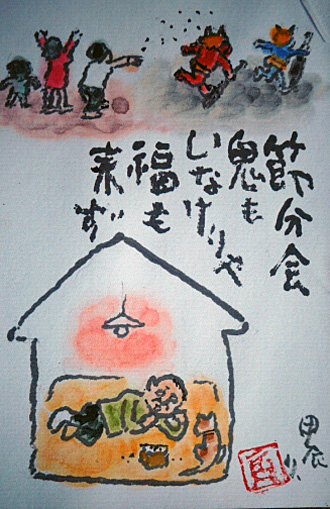 節分会
鬼も
いなけりゃ
福も
来ず
甲辰